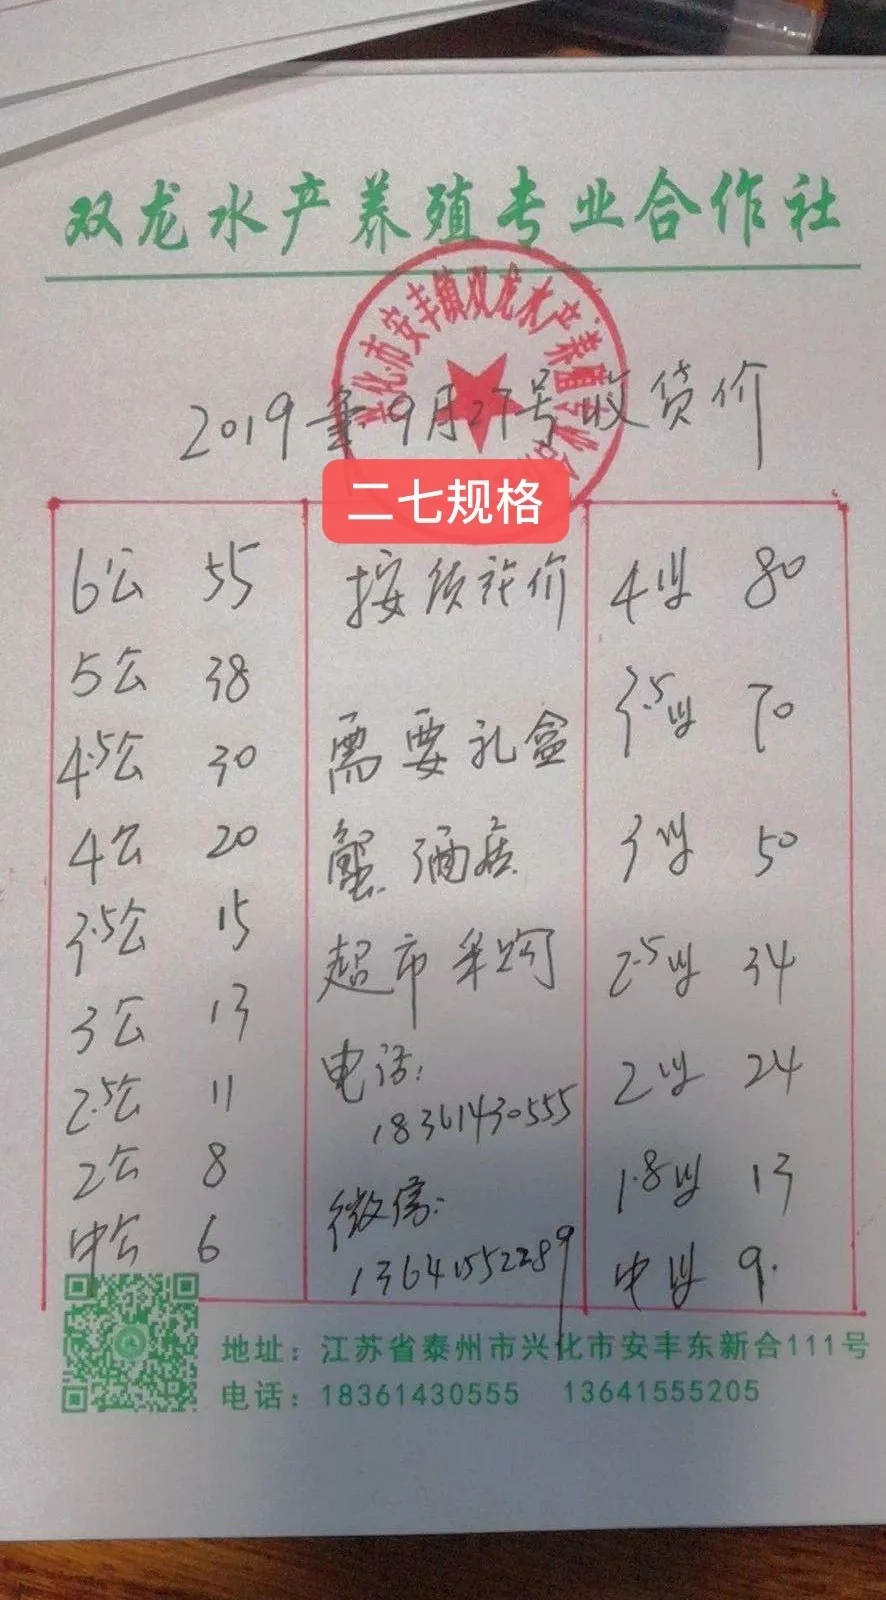 双龙水产养殖专业合作社
兴化市安丰镇双龙水产养殖专业合
2019年9月27号收货价
二七规格
6公 55
5公 38
4.5公 30
4公 20
3.5公 15
3公 13
2.5公 11
2公 8
中公 6
按 价
需要礼盒
蟹 酒店
超市采购
电话:
18361430555
微信:
13641552289
4母 80
3.5母 70
3母 50
2.5母 34
2母 24
1.8母 13
中母 9.
地址：江苏省泰州市兴化市安丰东新合111号
电话：18361430555 13641555205